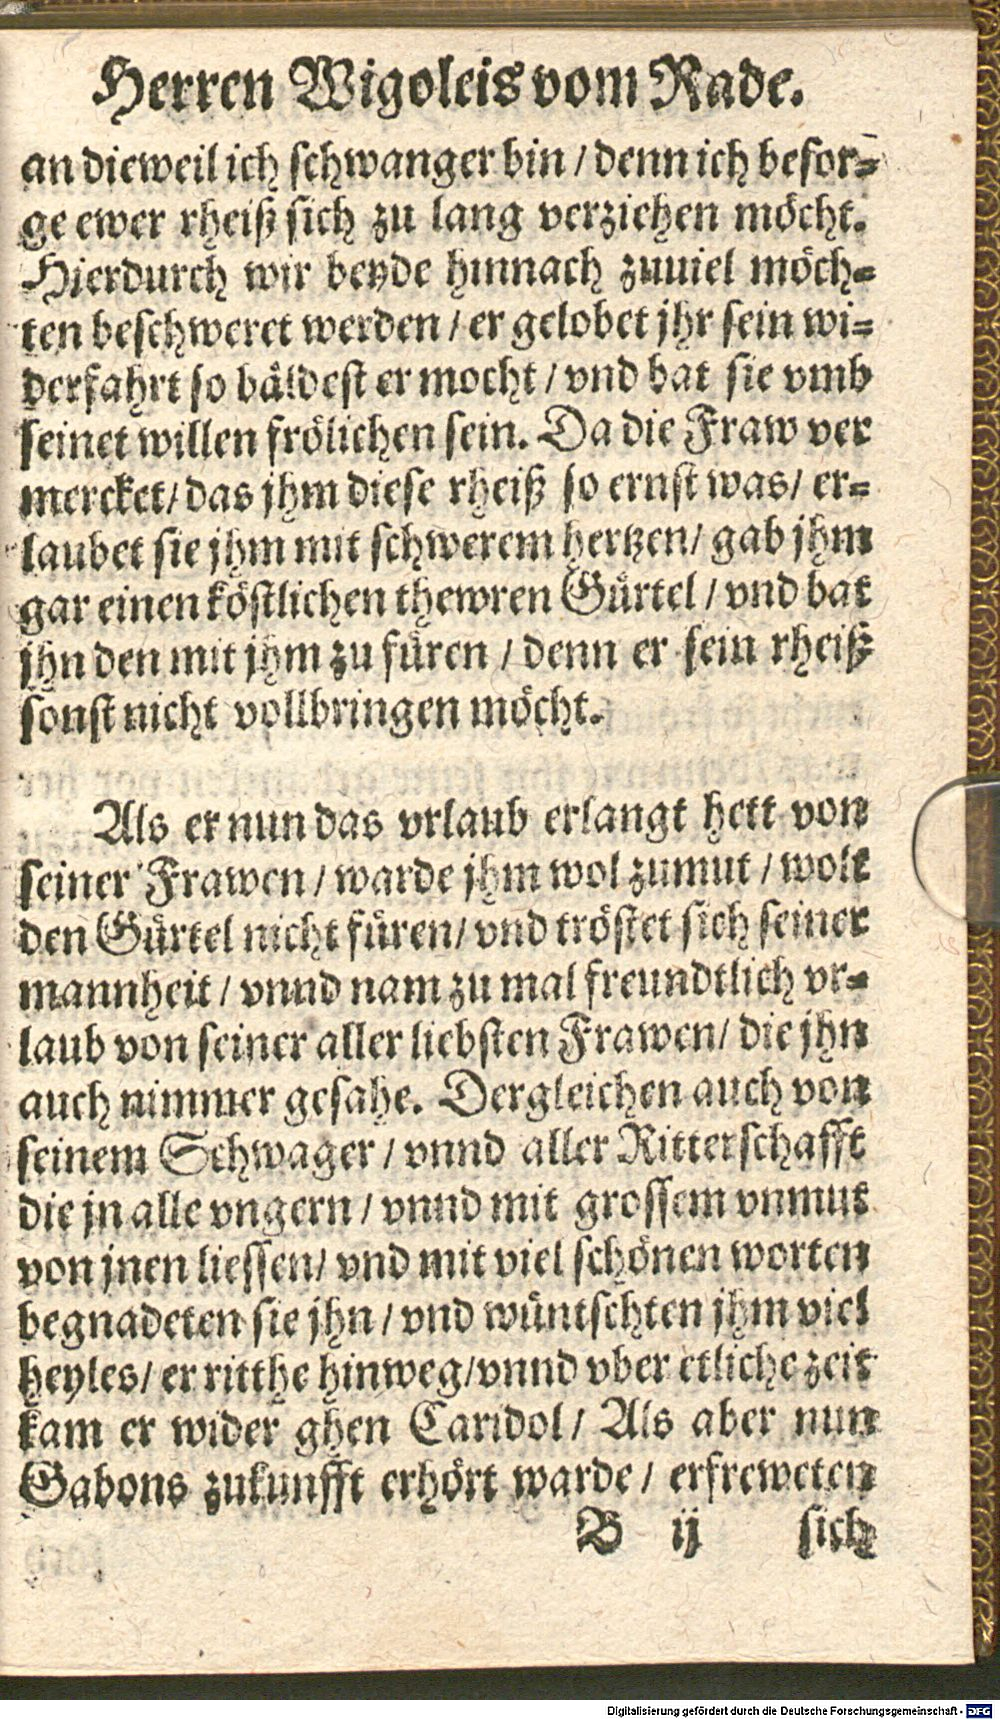 Herren Wigoleis vom Rade.
an dieweil ich schwanger bin / denn ich besor⸗
ge ewer rheiß sich zu lang verziehen möcht.
Hierdurch wir beyde hinnach zuuiel möch⸗
ten beschweret werden / er gelobet jhr sein wi⸗
derfahrt so bäldest er mocht / vnd bat sie vmb
seinet willen frölichen sein. Da die Fraw ver
mercket / das jhm diese rheiß so ernst was / er⸗
laubet sie jhm mit schwerem hertzen / gab jhm
gar einen köstlichen thewren Gürtel / vnd bat
jhn den mit jhm zu füren / denn er sein rheiß
sonst nicht vollbringen möcht.
Als er nun das vrlaub erlangt hett von
seiner Frawen / warde jhm wol zumut / wolt
den Gürtel nicht füren / vnd tröstet sich seiner
mannheit / vnnd nam zu mal freundtlich vr⸗
laub von seiner aller liebsten Frawen / die jhn
auch nimmer gesahe. Dergleichen auch von
seinem Schwager / vnnd aller Ritterschafft
die jn alle vngern / vnnd mit grossem vnmut
von jnen liessen / vnd mit viel schönen worten
begnadeten sie jhn / vnd wüntschten jhm viel
heyles / er ritthe hinweg / vnnd vber etliche zeit
kam er wider ghen Caridol / Als aber nun
Gabons zukunfft erhört warde / erfreweten
B ij sich
Digitalisierung gefördert durch die Deutsche Forschungsgemeinschaft - DFG